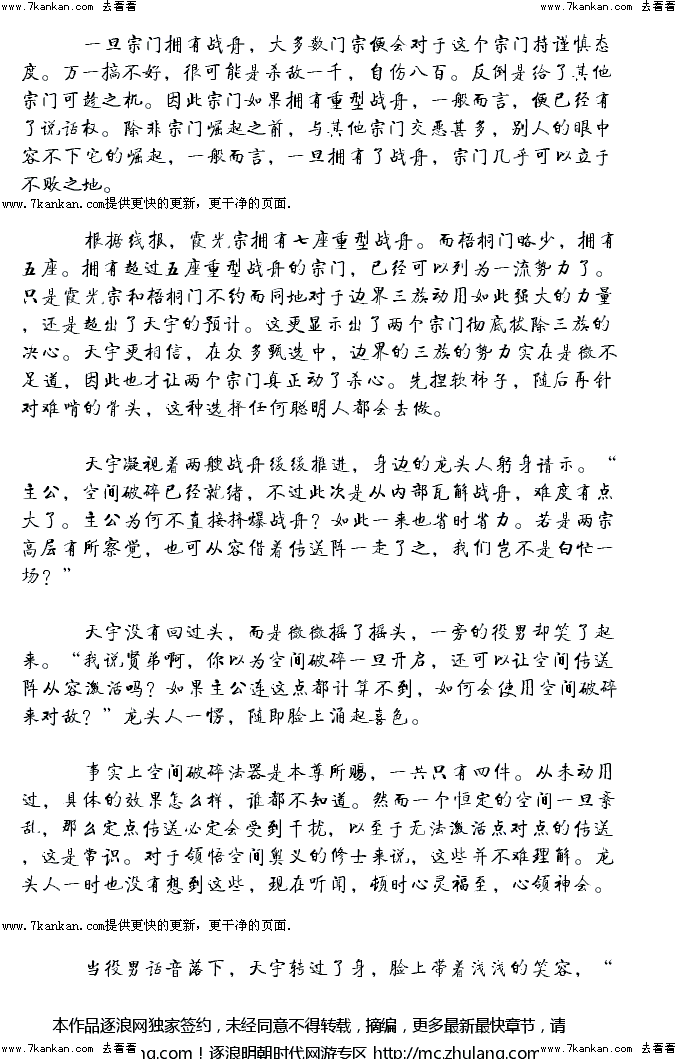 www.7kankan.com 去看看 www.7kankan.com 去看看
一旦宗门拥有战舟，大多数门宗便会对于这个宗门持谨慎态
度。万一搞不好，很可能是杀敌一千，自伤八百。反倒是给了其他
宗门可趁之机。因此宗门如果拥有重型战舟，一般而言，便已经有
了说话权。除非宗门崛起之前，与其他宗门交恶甚多，别人的眼中
容不下它的崛起，一般而言，一旦拥有了战舟，宗门几乎可以立于
不败之地。
www.7kankan.com提供更快的更新，更干净的页面.
根据线报，霞光宗拥有七座重型战舟。而梧桐门略少，拥有
五座。拥有超过五座重型战舟的宗门，已经可以列为一流势力了。
只是霞光宗和梧桐门不约而同地对于边界三族动用如此强大的力量
，还是超出了天宇的预计。这更显示出了两个宗门彻底拔除三族的
决心。天宇更相信，在众多甄选中，边界的三族的势力实在是微不
足道，因此也才让两个宗门真正动了杀心。先捏软柿子，随后再针
对难啃的骨头，这种选择任何聪明人都会去做。
天宇凝视着两艘战舟缓缓推进，身边的龙头人躬身请示。“
主公，空间破碎已经就绪，不过此次是从内部瓦解战舟，难度有点
大了。主公为何不直接挤爆战舟？如此一来也省时省力。若是两宗
高层有所察觉，也可从容借着传送阵一走了之，我们岂不是白忙一
场？”
天宇没有回过头，而是微微摇了摇头，一旁的役男却笑了起
来。“我说贤弟啊，你以为空间破碎一旦开启，还可以让空间传送
阵从容激活吗？如果主公连这点都计算不到，如何会使用空间破碎
来对敌？”龙头人一愣，随即脸上涌起喜色。
事实上空间破碎法器是本尊所赐，一共只有四件。从未动用
过，具体的效果怎么样，谁都不知道。然而一个恒定的空间一旦紊
乱，那么定点传送必定会受到干扰，以至于无法激活点对点的传送
，这是常识。对于领悟空间奥义的修士来说，这些并不难理解。龙
头人一时也没有想到这些，现在听闻，顿时心灵福至，心领神会。
www.7kankan.com提供更快的更新，更干净的页面.
当役男话音落下，天宇转过了身，脸上带着浅浅的笑容，“
本作品逐浪网独家签约，未经同意不得转载，摘编，更多最新最快章节，请
www.7kankan.com 去看看 ng.com！逐浪明朝时代网游专区 http://mc.zhulang.com/ www.7kankan.com 去看看